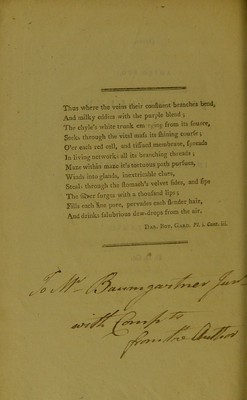 Thus where the veins their confluent branches bend,
And milky eddies with the purple blend;
The chyle's white trunk from its source,
Seeks through the vital mass its shining course;
O'er each red cell, and tissued membrane, spreads
In living net-works all its branching threads;
Maze within maze it's tortuous path pursues,
Winds into glands, inextricable clues,
Steals through the stomach's velvet sides, and sips
The silver surges with a thousand lips;
Fills each fine pore, pervades each slender hair,
And drinks salubrious dew-drops from the air.
DAR. BOT. GARD. Pt. i. Cant. iii.
To Mr Baumgartner Junr
with Comp ts
from the Author